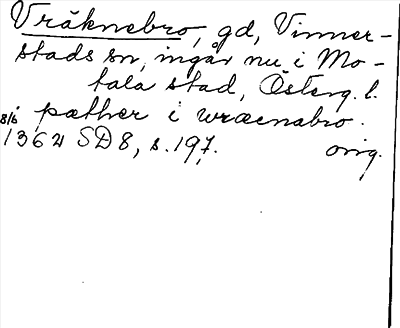 Vräknebro, gd, Vinner-
stads sn, ingår nu i Mo-
tala stad, Österg. l.
8/6 pæther i wræcnabro.
1362 SD 8, s. 197. orig.